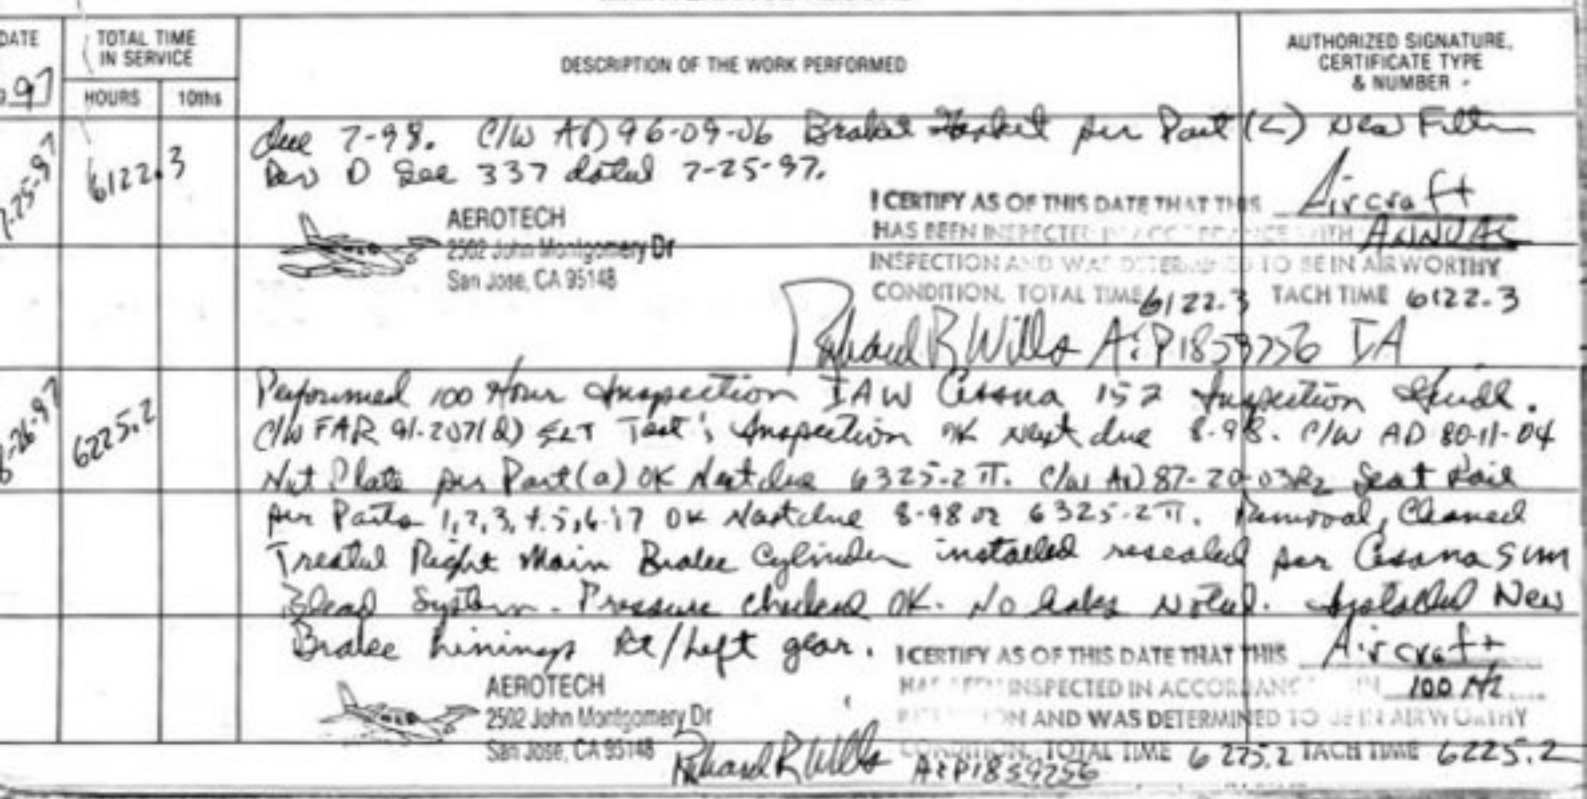 DATE
TOTAL TIME
IN SERVICE
DESCRIPTION OF THE WORK PERFORMED
AUTHORIZED SIGNATURE,
CERTIFICATE TYPE
& NUMBER
97
HOURS
10ths
7-25-97
6122.3
due 7-98. C/W AD 96-09-06 Brake per Part (2) New Filter
Rev D See 337 dated 7-25-97.
AEROTECH
2502 John Montgomery Dr
San Jose, CA 95148
I CERTIFY AS OF THIS DATE THAT THIS Aircraft
HAS BEEN INSPECTED IN ACCORDANCE WITH ANNUAL
INSPECTION AND WAS DETERMINED TO BE IN AIRWORTHY
CONDITION. TOTAL TIME 6122.3 TACH TIME 6122.3
Richard R Wills A&P IA
-26-97
6225.2
Performed 100 Hour Inspection IAW Cessna 152 Inspection Guide.
C/W FAR 91-207(d) ELT Test & Inspection OK Next due 8-98. C/W AD 80-11-04
Nut Plate per Part(a) OK Next due 6325.2 TT. C/W AD 87-20-03R2 Seat Rail
per Parts 1,2,3,4,5,6,17 OK Next due 8-98 or 6325.2 TT. Removed, Cleaned
Treated Right Main Brake Cylinder installed resealed per Cessna S/M
Bleed System. Pressure checked OK. No leaks Noted. Installed New
Brake Linings Rt/Left gear.
AEROTECH
2502 John Montgomery Dr
San Jose, CA 95148
I CERTIFY AS OF THIS DATE THAT THIS Aircraft
HAS BEEN INSPECTED IN ACCORDANCE 100 Hr
AND WAS DETERMINED TO BE IN AIRWORTHY
CONDITION. TOTAL TIME 6225.2 TACH TIME 6225.2
Richard R Wills A&P1859256